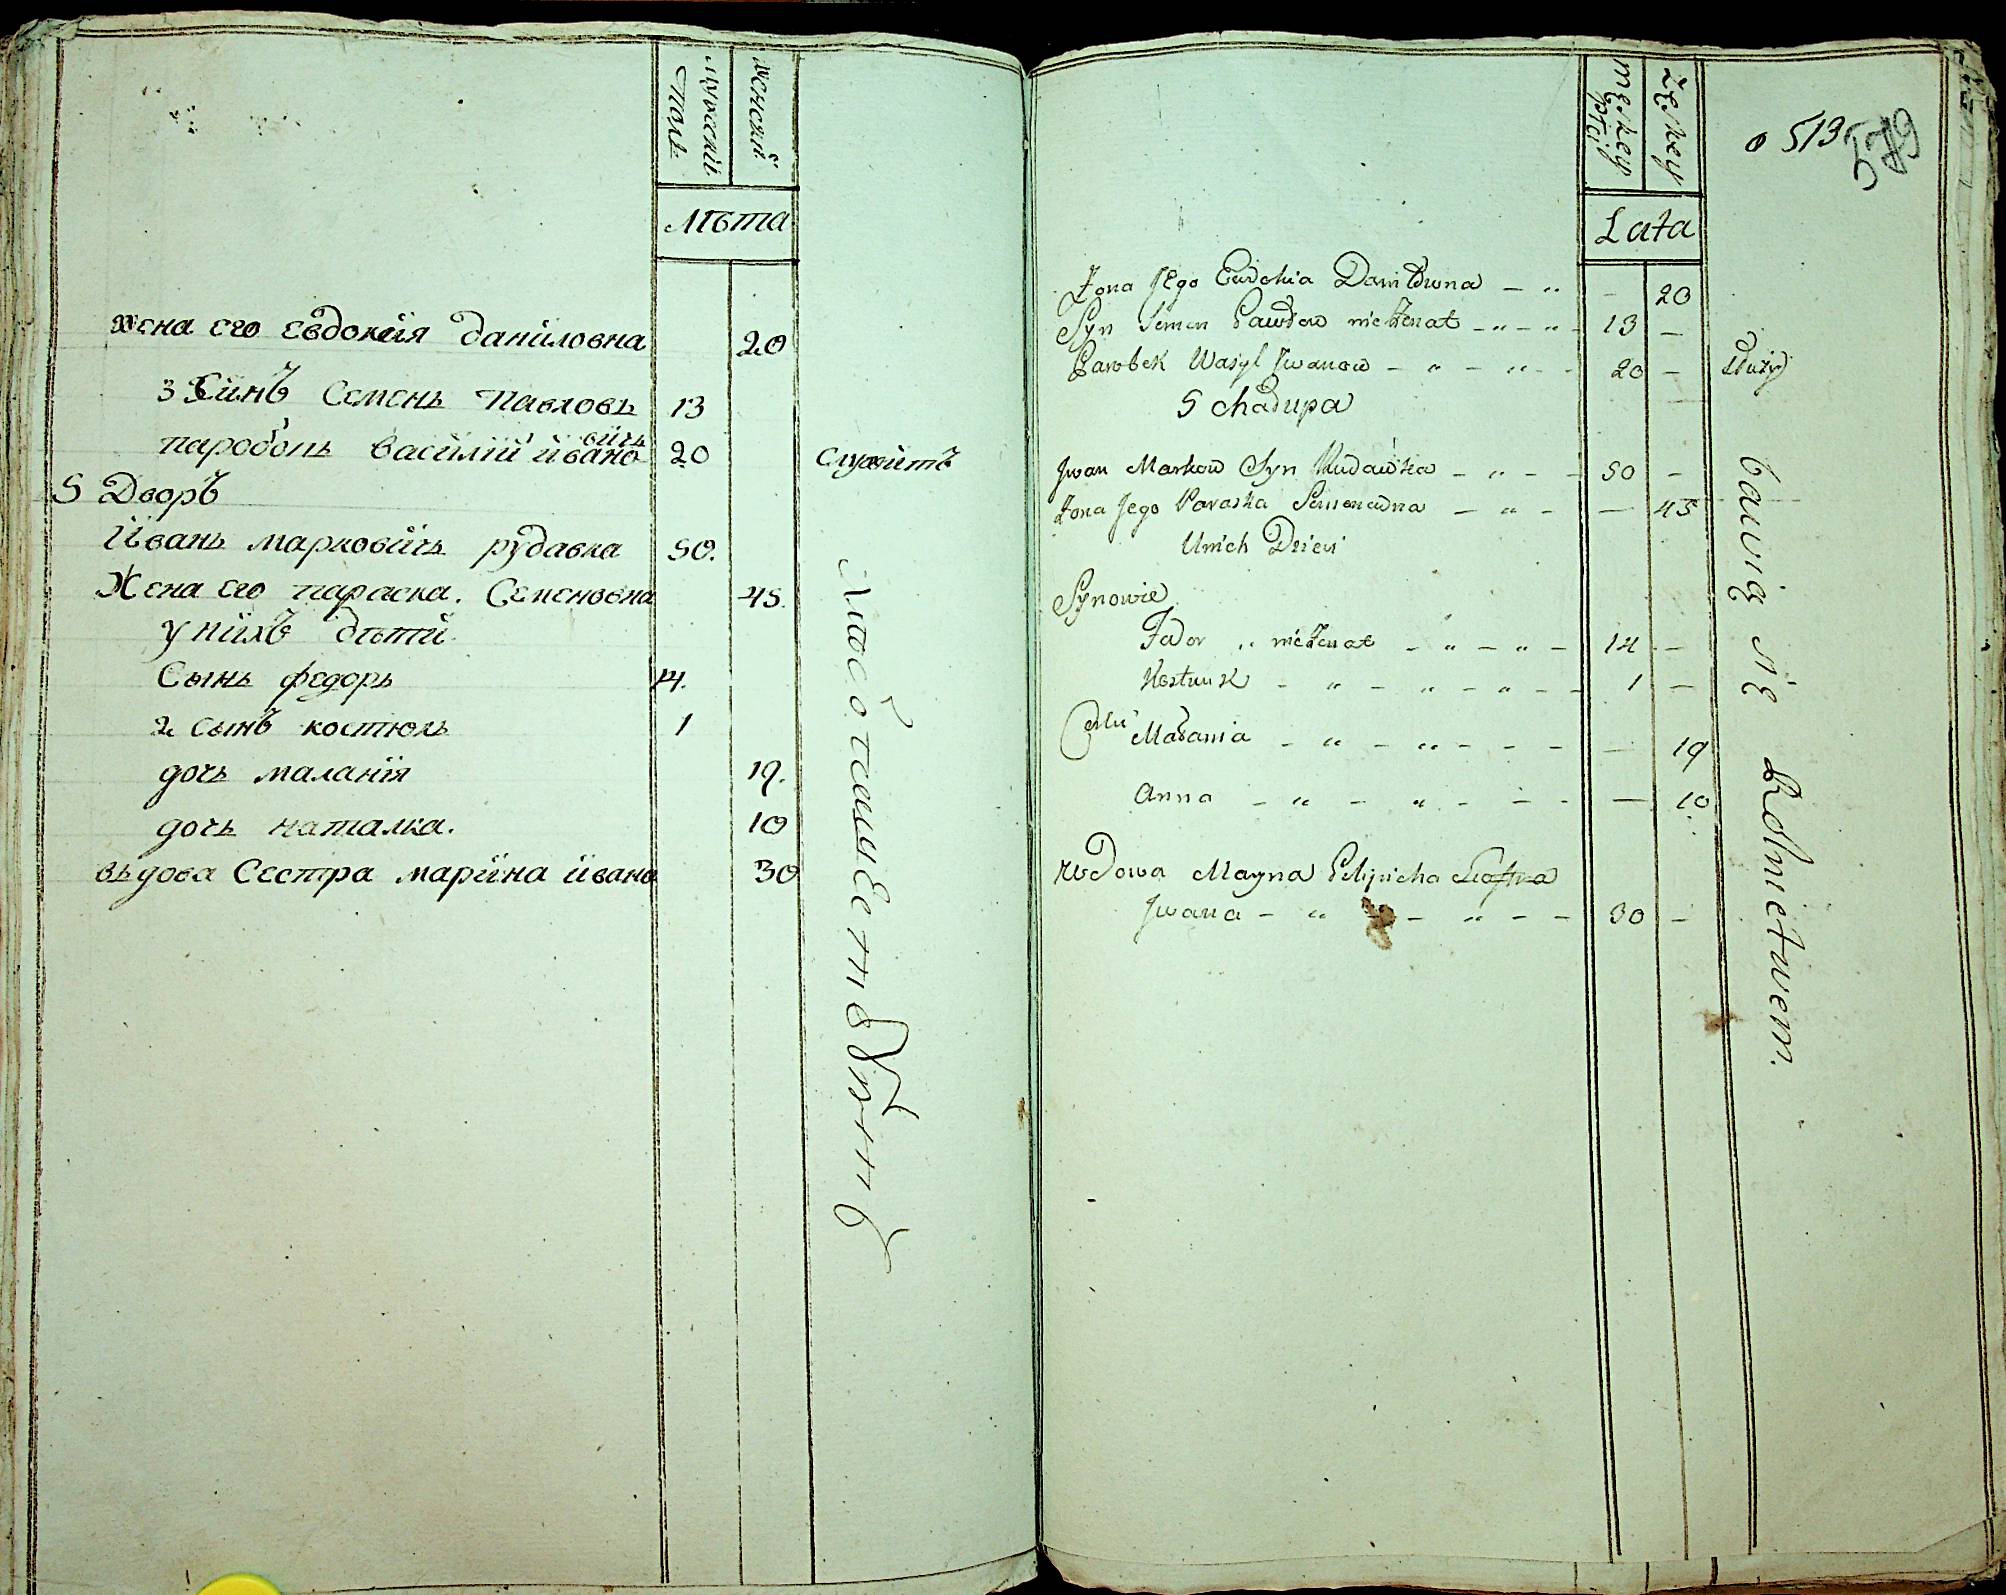 мужескій полъ
женскій
Лѣта
жена его евдокія даниловна 20
3 Синъ Семенъ павловъ 13
паробокъ василій йвановичъ 20 служитъ
5 Дворъ
Йванъ марковичъ рудавка 50.
Жена его параска. Семеновна 45.
у нихъ дѣти
Сынъ федоръ 14.
2 сынъ костюкъ 1
дочь маланія 19.
дочь наталка. 10
вдова Сестра марина йвано 30
męskey płci
żęskey
Lata
o 513
579
Zona Jego Eudokia Daniłowna — „ — 20
Syn Semen Pawłow nieżenat — „ — „ — 13 —
Parobek Wasyl Jwanow — „ — „ — 20 — służy
5 Chałupa
Jwan Markow Syn Rudawka — „ — 50 —
Zona Jego Paraska Semenowna — „ — — 45
Unich Dzieci
Synowie
Fedor „ nieżenat — „ — „ — 14 —
Kostiuk — „ — „ — „ — 1 —
Corki Małania — „ — „ — — — 19
Anna — „ — „ — — — 10
wdowa Maryna
Jwana — „ — „ — — 30 —
bawią się Rolnictwem.